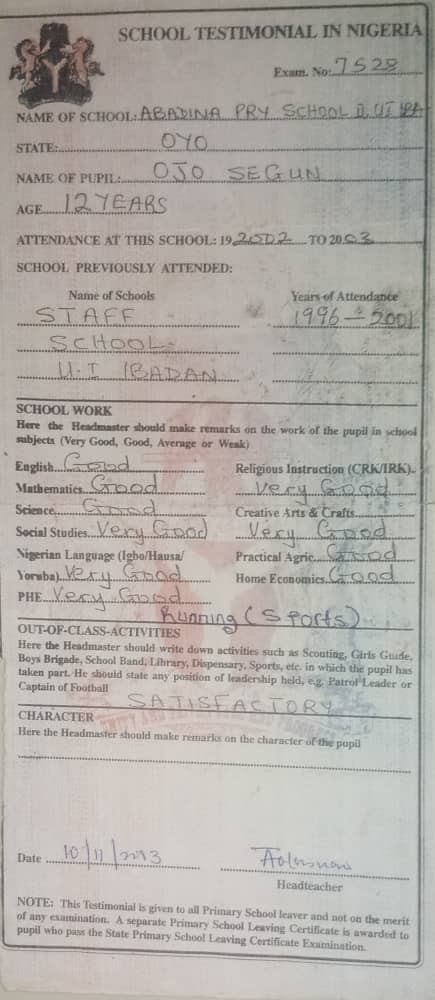 SCHOOL TESTIMONIAL IN NIGERIA
Exam. No: 7528
NAME OF SCHOOL: ABADINA PRY SCHOOL II, UI
STATE: OYO
NAME OF PUPIL: OJO SEGUN
AGE 12 YEARS
ATTENDANCE AT THIS SCHOOL: 19 2002 TO 2003
SCHOOL PREVIOUSLY ATTENDED:
Name of Schools Years of Attendance
STAFF 1996 - 2001
SCHOOL
U.I IBADAN
SCHOOL WORK
Here the Headmaster should make remarks on the work of the pupil in school
subjects (Very Good, Good, Average or Weak)
English Good Religious Instruction (CRK/IRK)
Mathematics Good Very Good
Science Good Creative Arts & Crafts
Social Studies Very Good Very Good
Nigerian Language (Igbo/Hausa/ Practical Agric Good
Yoruba) Very Good Home Economics Good
PHE Very Good
Running (Sports)
OUT-OF-CLASS-ACTIVITIES
Here the Headmaster should write down activities such as Scouting, Girls Guide,
Boys Brigade, School Band, Library, Dispensary, Sports, etc. in which the pupil has
taken part. He should state any position of leadership held, e.g. Patrol Leader or
Captain of Football
SATISFACTORY
CHARACTER
Here the Headmaster should make remarks on the character of the pupil
Date 10/11/2013
Headteacher
NOTE: This Testimonial is given to all Primary School leaver and not on the merit
of any examination. A separate Primary School Leaving Certificate is awarded to
pupil who pass the State Primary School Leaving Certificate Examination.